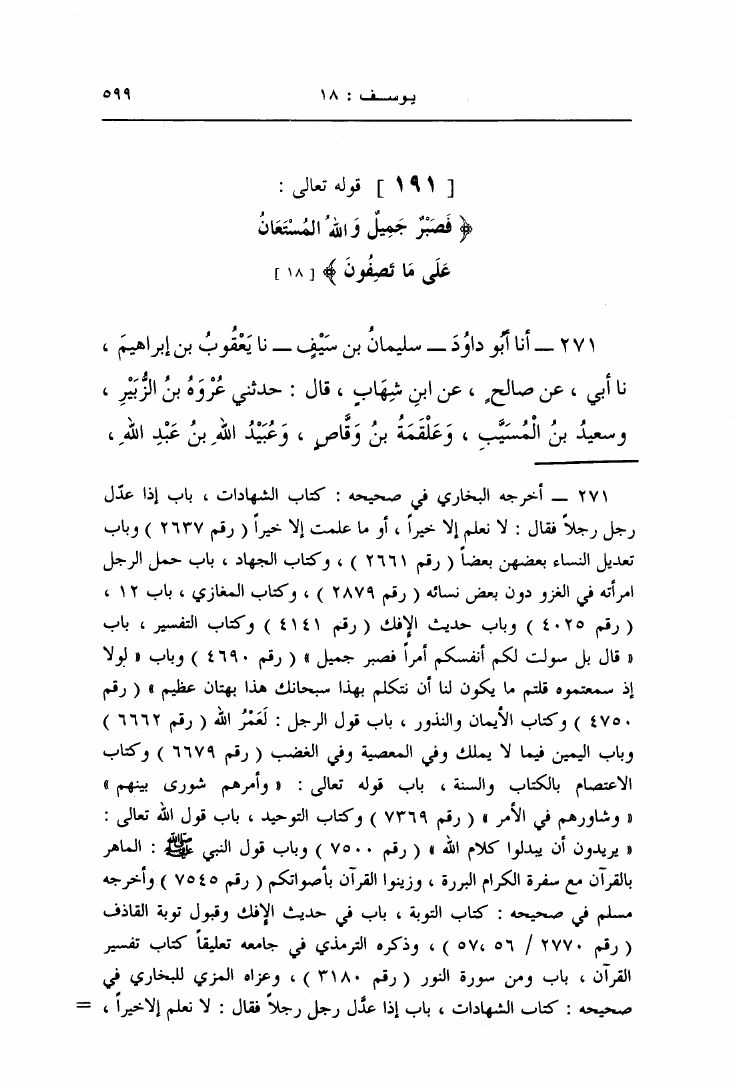 يوسف : ١٨ ٥٩٩
[ ١٩١ ] قوله تعالى :
﴿ فَصَبْرٌ جَمِيلٌ وَاللهُ المُسْتَعَانُ
عَلَى مَا تَصِفُونَ ﴾ [ ١٨ ]
٢٧١ — أنا أَبُو داوُدَ — سليمانُ بن سَيْفٍ — نا يَعْقُوبُ بن إبراهيمَ ،
نا أبي ، عن صالحٍ ، عن ابنِ شِهَابٍ ، قال : حدثني عُرْوَةُ بنُ الزُّبَيْرِ ،
وسعيدُ بنُ الْمُسَيَّبِ ، وَعَلْقَمَةُ بنُ وَقَّاصٍ ، وَعُبَيْدُ اللهِ بنُ عَبْدِ اللهِ ،
٢٧١ — أخرجه البخاري في صحيحه : كتاب الشهادات ، باب إذا عدّل
رجل رجلاً فقال : لا نعلم إلا خيراً ، أو ما علمت إلا خيراً ( رقم ٢٦٣٧ ) وباب
تعديل النساء بعضهن بعضاً ( رقم ٢٦٦١ ) ، وكتاب الجهاد ، باب حمل الرجل
امرأته في الغزو دون بعض نسائه ( رقم ٢٨٧٩ ) ، وكتاب المغازي ، باب ١٢ ،
( رقم ٤٠٢٥ ) وباب حديث الإفك ( رقم ٤١٤١ ) وكتاب التفسير ، باب
« قال بل سولت لكم أنفسكم أمراً فصبر جميل » ( رقم ٤٦٩٠ ) وباب « لولا
إذ سمعتموه قلتم ما يكون لنا أن نتكلم بهذا سبحانك هذا بهتان عظيم » ( رقم
٤٧٥٠ ) وكتاب الأيمان والنذور ، باب قول الرجل : لَعَمْرُ الله ( رقم ٦٦٦٢ )
وباب اليمين فيما لا يملك وفي المعصية وفي الغضب ( رقم ٦٦٧٩ ) وكتاب
الاعتصام بالكتاب والسنة ، باب قوله تعالى : « وأمرهم شورى بينهم »
« وشاورهم في الأمر » ( رقم ٧٣٦٩ ) وكتاب التوحيد ، باب قول الله تعالى :
« يريدون أن يبدلوا كلام الله » ( رقم ٧٥٠٠ ) وباب قول النبي ﷺ : الماهر
بالقرآن مع سفرة الكرام البررة ، وزينوا القرآن بأصواتكم ( رقم ٧٥٤٥ ) وأخرجه
مسلم في صحيحه : كتاب التوبة ، باب في حديث الإفك وقبول توبة القاذف
( رقم ٢٧٧٠ / ٥٦ ،٥٧ ) ، وذكره الترمذي في جامعه تعليقاً كتاب تفسير
القرآن ، باب ومن سورة النور ( رقم ٣١٨٠ ) ، وعزاه المزي للبخاري في
صحيحه : كتاب الشهادات ، باب إذا عدَّل رجل رجلاً فقال : لا نعلم إلاخيراً ، =